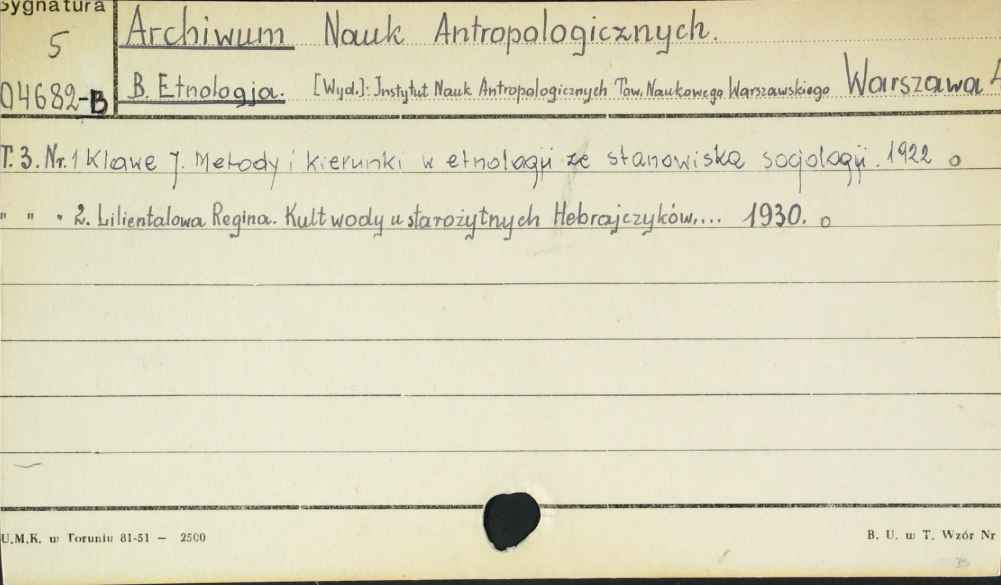 Sygnatura
5
04682-B
Archiwum Nauk Antropologicznych.
B. Etnologja. [Wyd.]: Instytut Nauk Antropologicznych Tow. Naukowego Warszawskiego Warszawa
T. 3. Nr. 1 Klawe J. Metody i kierunki w etnologji ze stanowiska socjologji. 1922 o
" " " 2. Lilientalowa Regina. Kult wody u starożytnych Hebrajczyków,... 1930. o
U.M.K. w Toruniu 81-51 — 2500
B. U. w T. Wzór Nr
B